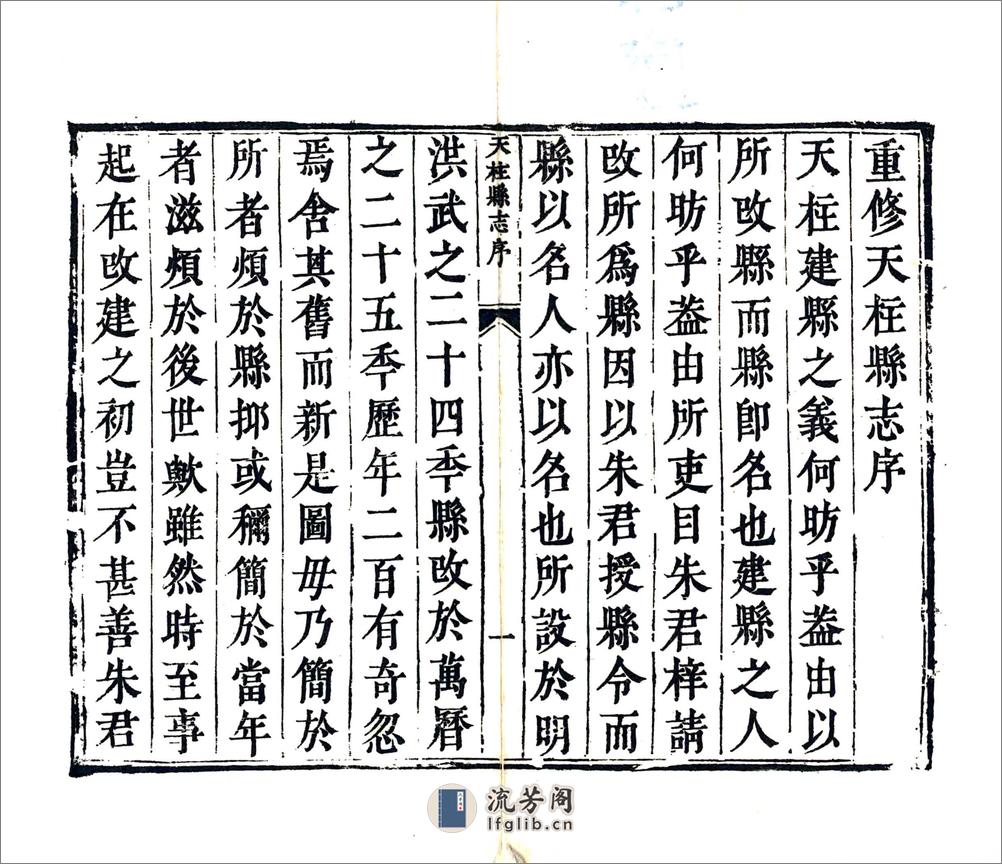 重修天柱縣志序
天柱建縣之義何昉乎葢由以
所改縣而縣卽名也建縣之人
何昉乎葢由所吏目朱君梓請
改所爲縣因以朱君授縣令而
縣以名人亦以名也所設於明
天柱縣志序
一
洪武之二十四秊縣改於萬曆
之二十五秊歷年二百有奇忽
焉舍其舊而新是圖毋乃簡於
所者煩於縣抑或禰簡於當年
者滋煩於後世歟雖然時至事
起在改建之初豈不甚善朱君
流芳阁
lfglib.cn